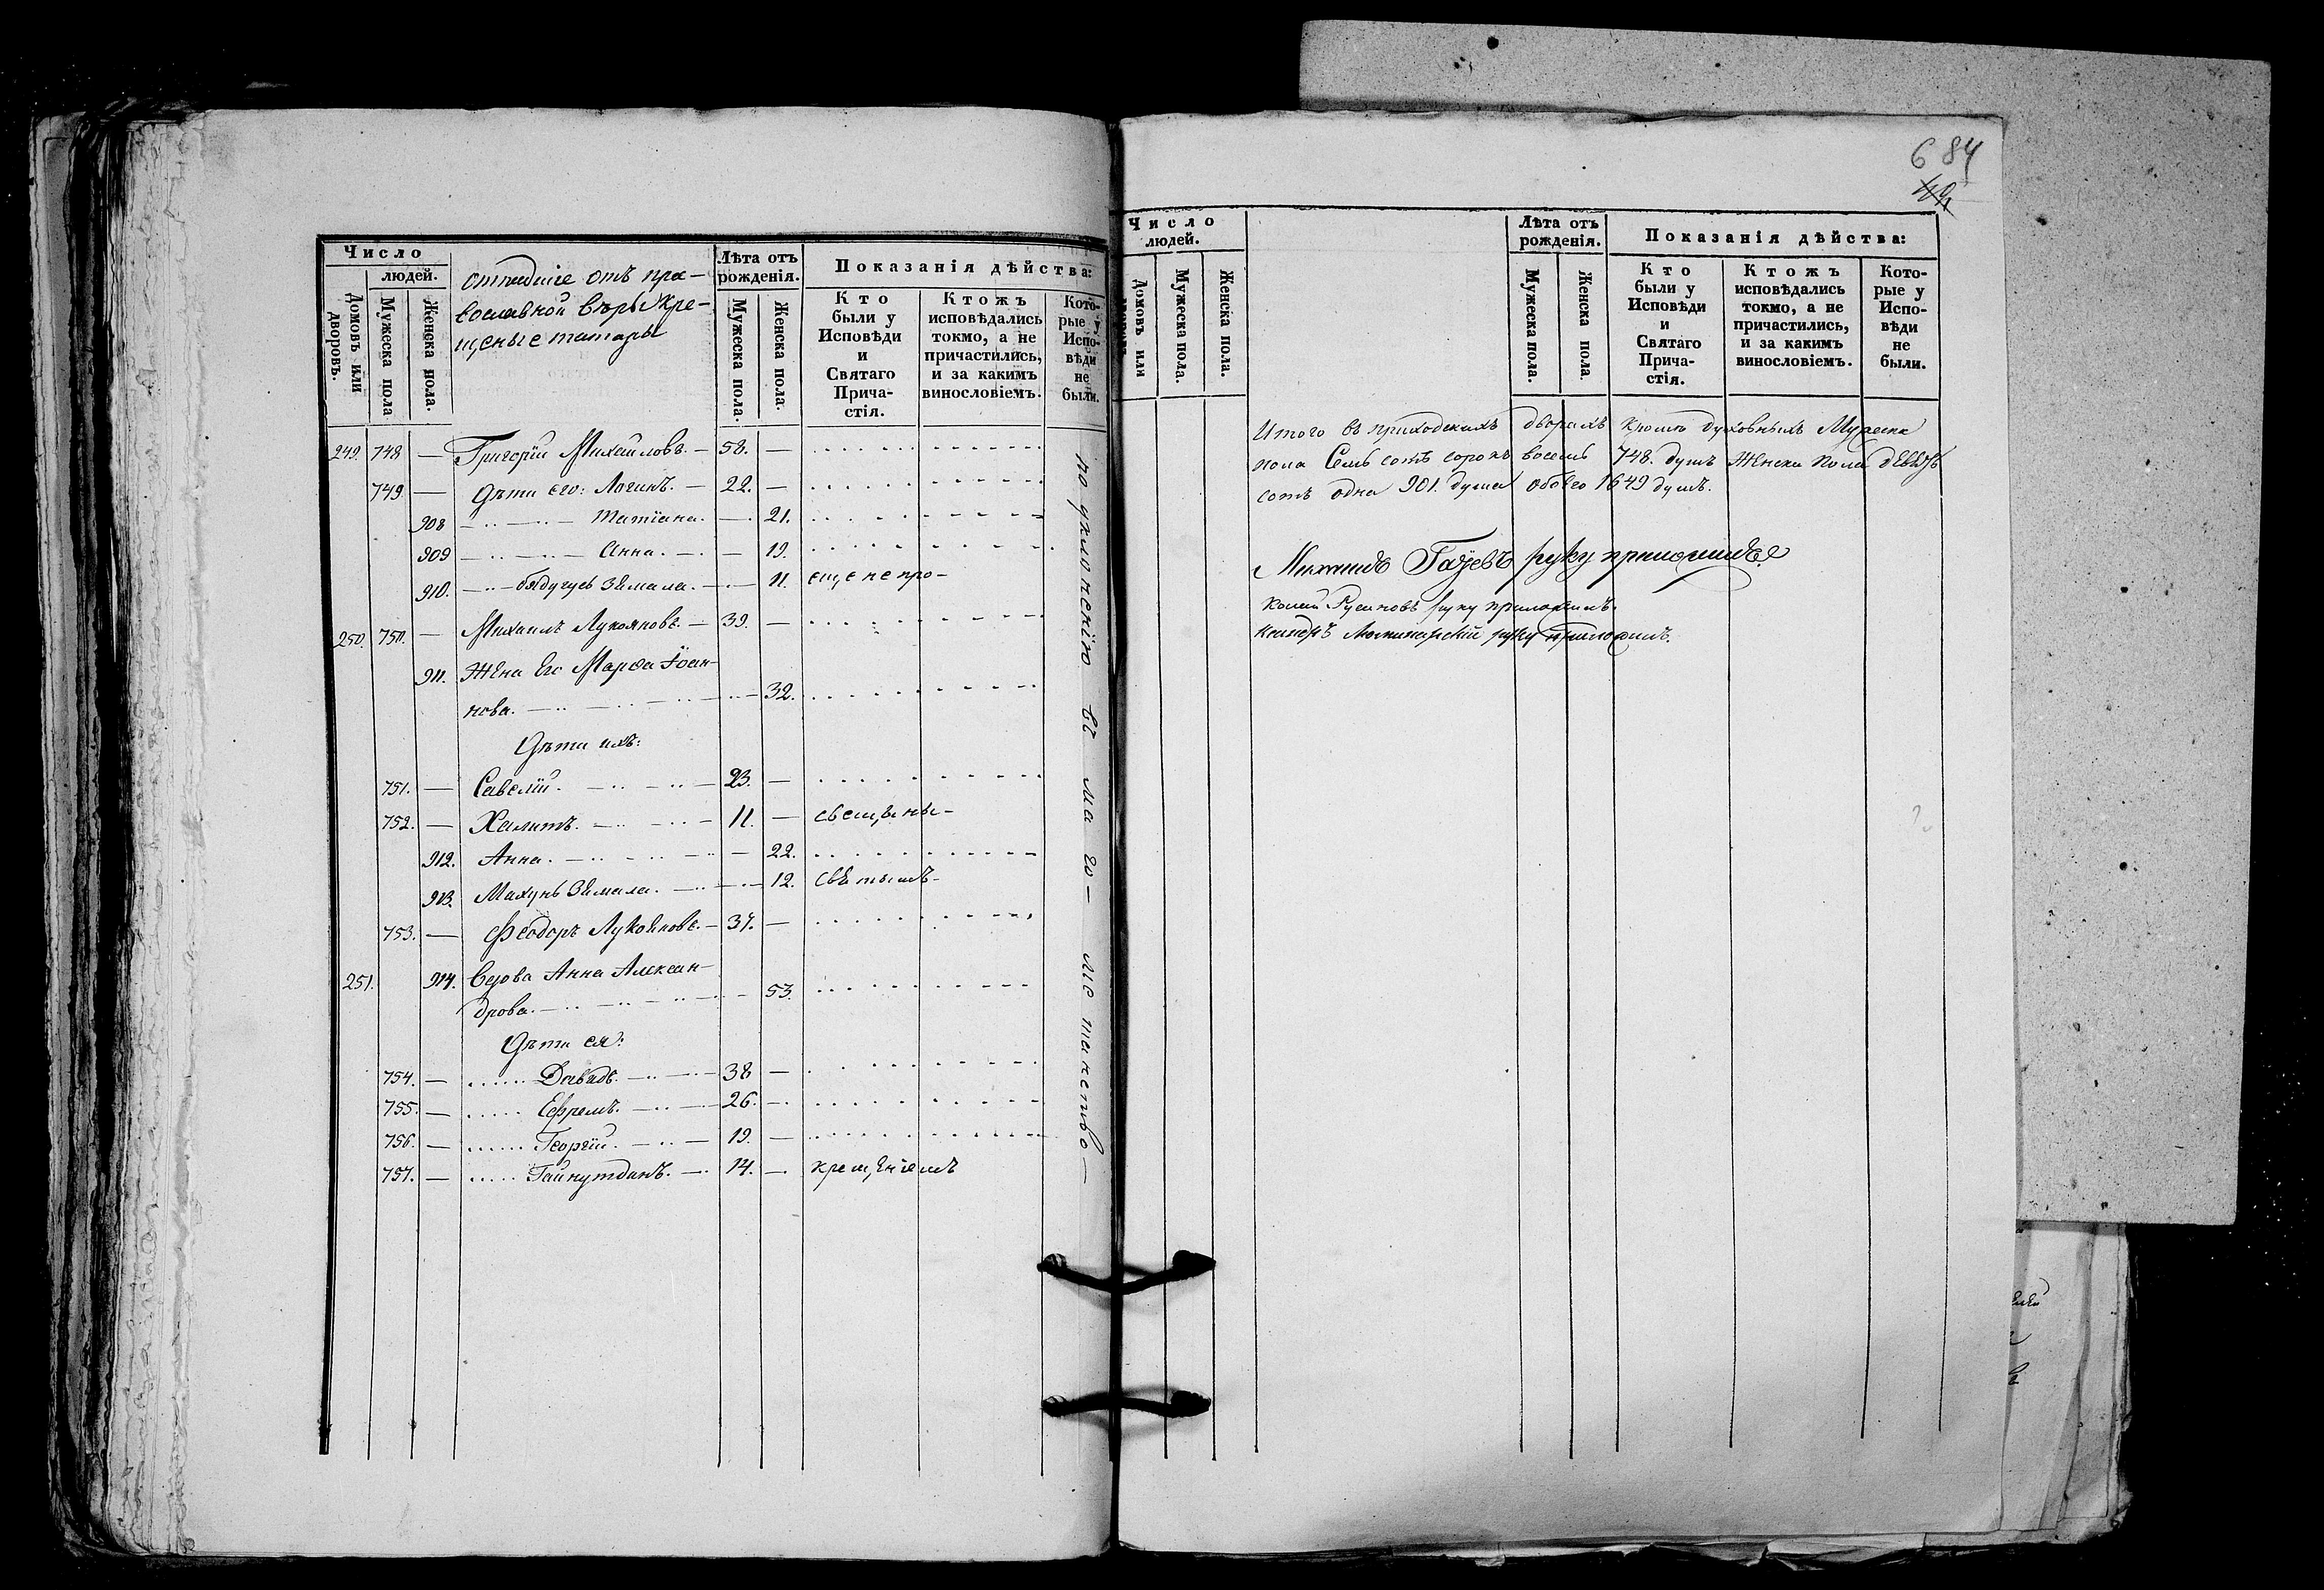 Число
людей.
Домовъ или дворовъ.
Мужеска пола
Женска пола.
отпадшіе отъ пра-
вославной вѣры кре-
щеные татары
Лѣта отъ
рожденія.
Мужеска пола.
Женска пола.
Показанія дѣйства:
Кто
были у
Исповѣди
и
Святаго
Прича-
стія.
Ктожъ
исповѣдались
токмо, а не
причастились,
и за какимъ
винословіемъ.
Кото-
рые у
Испо-
вѣди
не
были.
249. 748 — Григорій Михайловъ. — 58. —
749. — Дѣти его: Логинъ. — 22. —
908 Татіана. — 21.
909 Анна. — 19.
910. Зямала. — 11. еще не про-
250. 750. — Михаилъ Лукояновъ. — 39. —
911. Жена Его Марѳа Іоан-
нова. — 32.
Дѣти ихъ:
751. — Савелій. — 23. —
752. — Халитъ. — 11. — свещены-
912. Анна. — 22.
913. Махунь Зямала. — 12. святымъ-
753. — Ѳеодоръ Лукояновъ. — 37. —
251. 914. Вдова Анна Алексан-
дрова. — 53.
Дѣти ея:
754. — Давидъ. — 38 —
755. — Ефремъ. — 26. —
756. — Георгій. — 19. —
757. — Гайнутдинъ. — 14. — крещеніемъ
по уклоненію въ ма го- ме танство —
684
Число
людей.
Домовъ или
Мужеска пола.
Женска пола.
Лѣта отъ
рожденія.
Мужеска пола.
Женска пола.
Показанія дѣйства:
Кто
были у
Исповѣди
и
Святаго
Прича-
стія.
Ктожъ
исповѣдались
токмо, а не
причастились,
и за какимъ
винословіемъ.
Кото-
рые у
Испо-
вѣди
не
были.
Итого въ приходскихъ дворахъ кромѣ духовныхъ Мужеска
пола Семь сотъ сорокъ восемь 748. душъ Женска пола девять
сотъ одна 901. душа обоего 1649 душъ.
Михаилъ руку приложилъ
Русановъ руку приложилъ.
руку приложилъ.